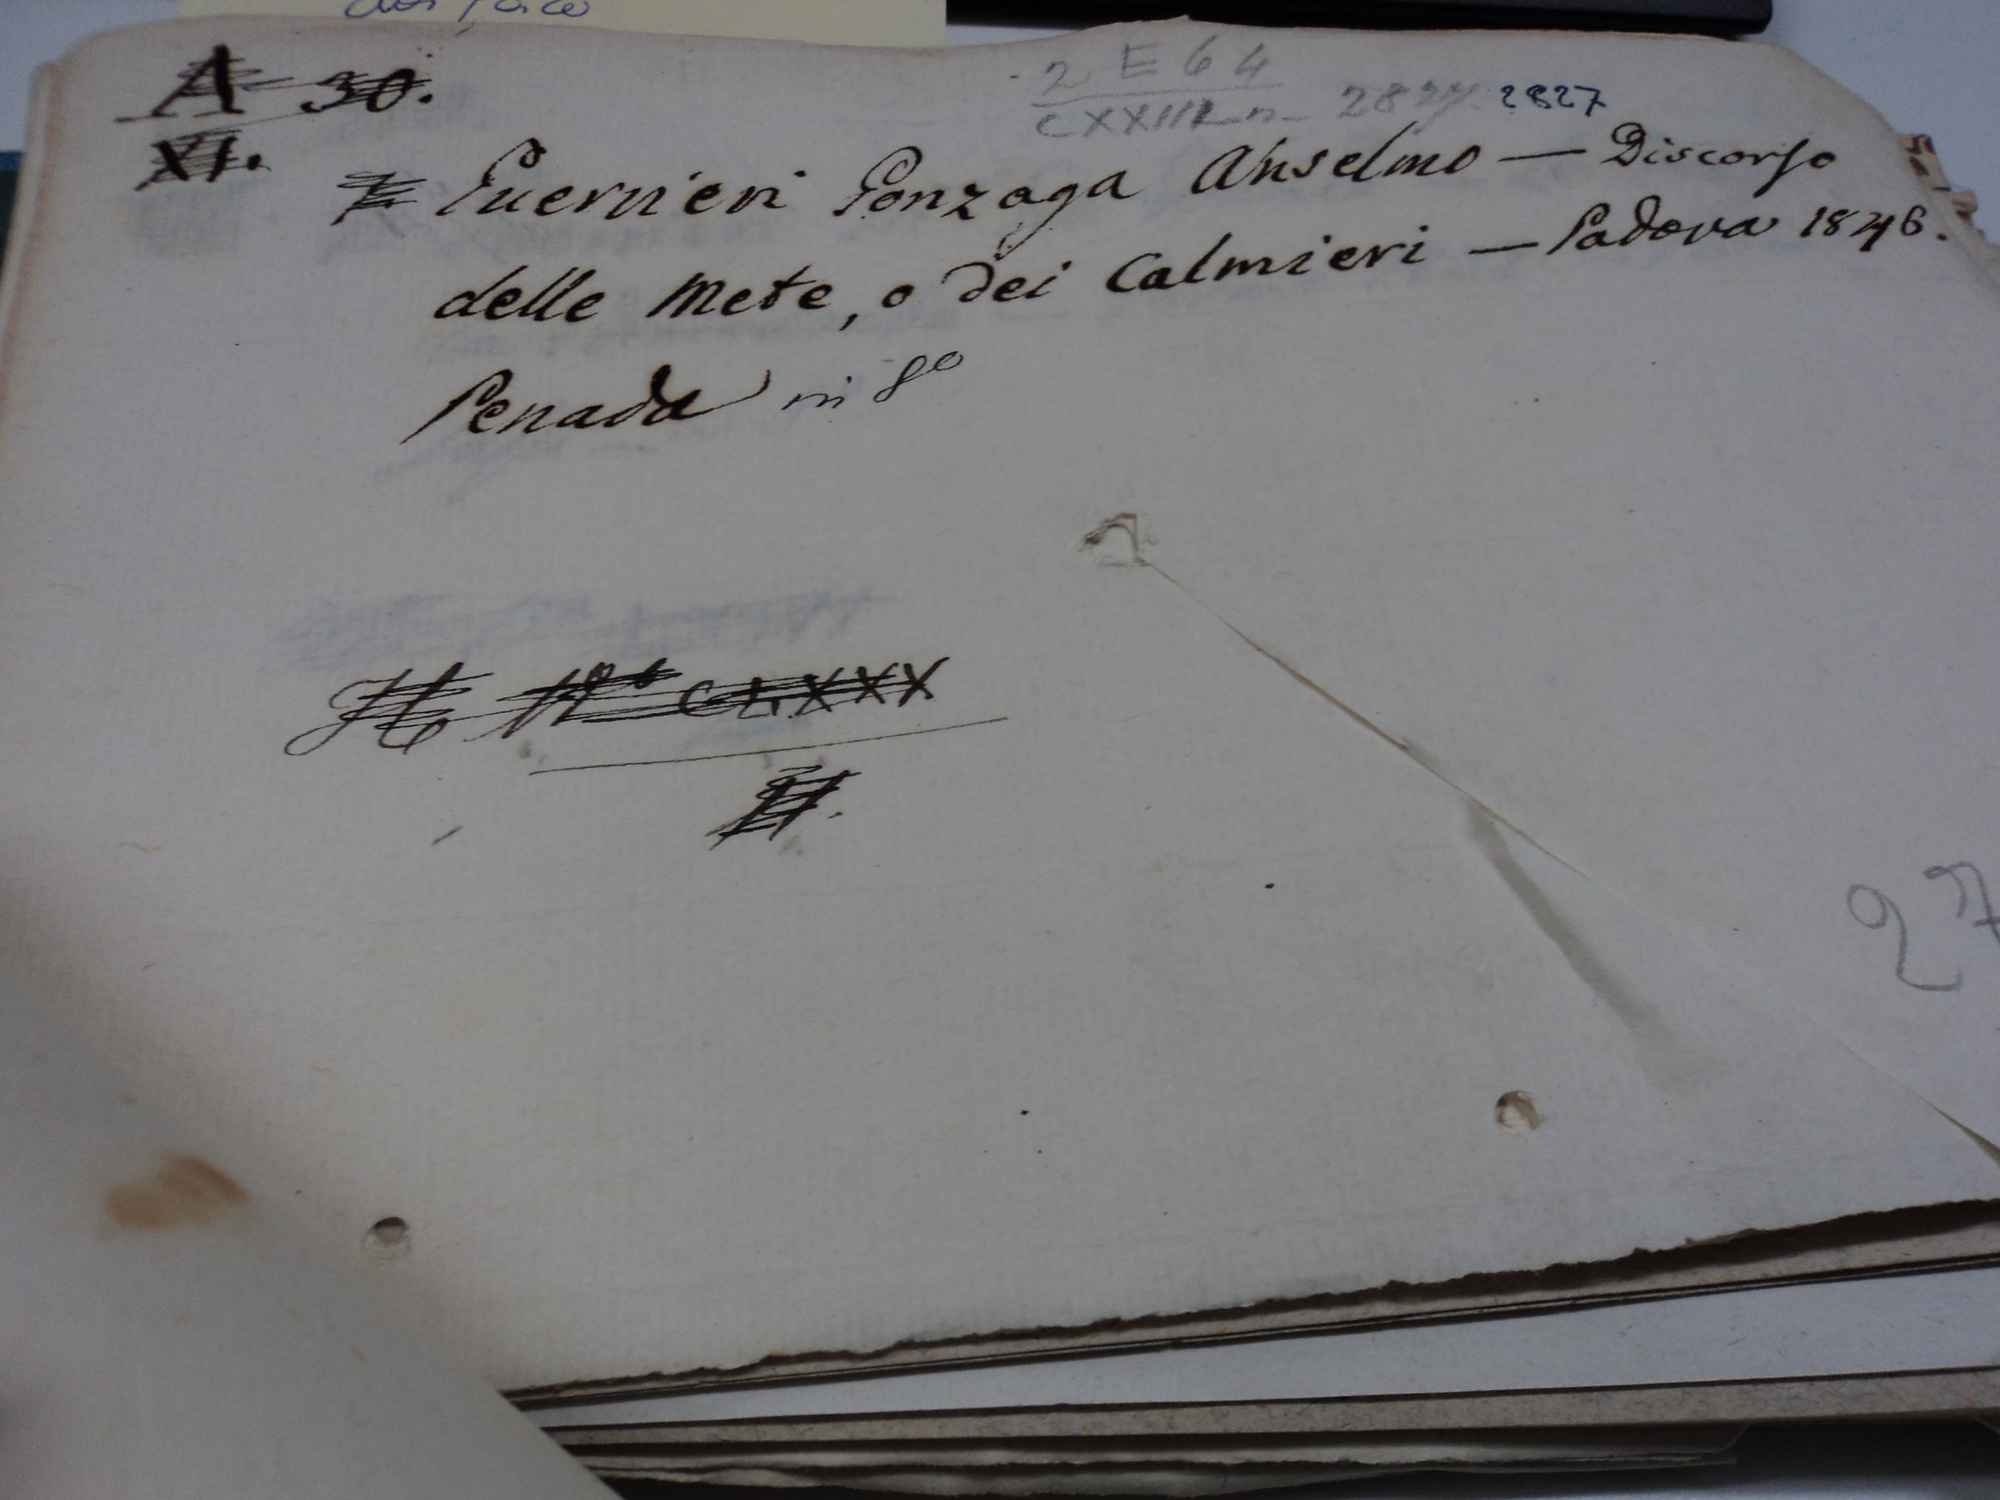 A 30.
XI.
2 E 64
CXXIII n 2827 2827
Guerrieri Gonzaga Anselmo — Discorso
delle Mete, o dei Calmieri — Padova 1846.
Penada in 8º
CLXXX
27